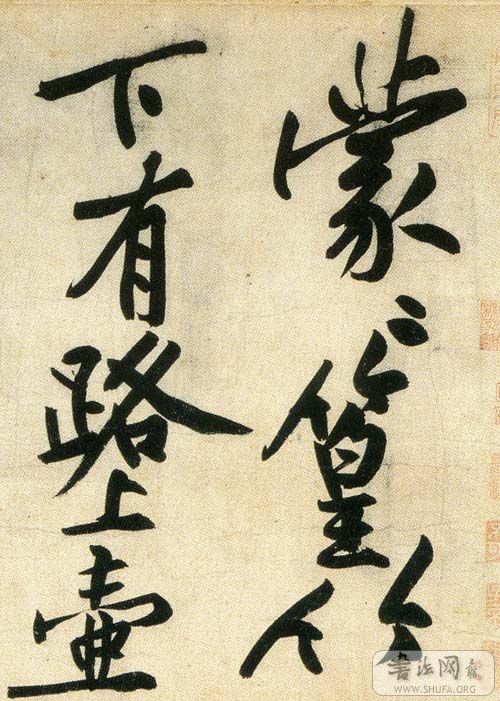 蒙〻篁竹
下有路上壺
書法网
WWW.SHUFA.ORG